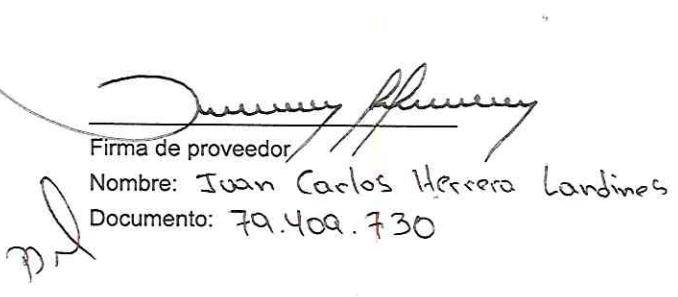 Firma de proveedor
Nombre: Juan Carlos Herrera Landines
Documento: 79.409.730